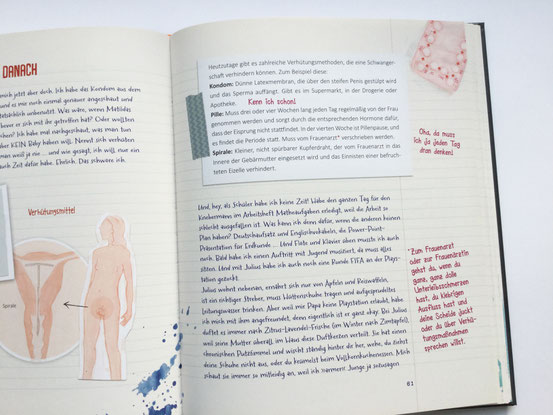 DANACH
mich jetzt aber doch. Ich habe das Kondom aus dem
und es mir noch einmal genauer angeschaut und
tatsächlich benutzt. Was wäre, wenn Matildas
vorher er sich mit ihr getroffen hat? Oder wollten
chen? Ich habe mal nachgeschaut, was man tun
aber KEIN Baby haben will. Nennt sich verhüten
man weiß ja nie ... und wie gesagt, ich will, nur ein
auch Zeit dafür habe. Ehrlich. Das schwöre ich.
Verhütungsmittel
Spirale
Heutzutage gibt es zahlreiche Verhütungsmethoden, die eine Schwanger-
schaft verhindern können. Zum Beispiel diese:
Kondom: Dünne Latexmembran, die über den steifen Penis gestülpt wird
und das Sperma auffängt. Gibt es im Supermarkt, in der Drogerie oder
Apotheke. Kenn ich schon!
Pille: Muss drei oder vier Wochen lang jeden Tag regelmäßig von der Frau
genommen werden und sorgt durch die entsprechenden Hormone dafür,
dass der Eisprung nicht stattfindet. In der vierten Woche ist Pillenpause, und
es findet die Periode statt. Muss vom Frauenarzt* verschrieben werden.
Spirale: Kleiner, nicht spürbarer Kupferdraht, der vom Frauenarzt in das
Innere der Gebärmutter eingesetzt wird und das Einnisten einer befruch-
teten Eizelle verhindert.
Oha, da muss
ich ja jeden Tag
dran denken!
Und, hey, als Schüler habe ich keine Zeit! Habe den ganzen Tag für den
Knobermann im Arbeitsheft Matheaufgaben erledigt, weil die Arbeit so
schlecht ausgefallen ist. Was kann ich denn dafür, wenn die anderen keinen
Plan haben? Deutschaufsatz und Englischvokabeln, die Power-Point-
Präsentation für Erdkunde ... Und Flöte und Klavier üben musste ich auch
noch. Bald habe ich einen Auftritt mit Jugend musiziert, da muss alles
sitzen. Und mit Julius habe ich auch noch eine Runde FIFA an der Play-
station gezockt.
Julius wohnt nebenan, ernährt sich nur von Äpfeln und Reiswaffeln,
ist ein richtiger Streber, muss Wollsocken tragen und aufgesprudeltes
Leitungswasser trinken. Aber weil mir Papa keine Playstation erlaubt, habe
ich mich mit ihm angefreundet, denn eigentlich ist er ganz okay. Bei Julius
duftet es immer nach Zitrus-Lavendel-Frische (im Winter nach Zimtapfel),
weil seine Mutter überall im Haus diese Duftkerzen verteilt. Sie hat einen
chronischen Putzfimmel und wischt ständig hinter dir her, wehe, du ziehst
deine Schuhe nicht aus, oder du krümelst beim Vollkornkuchenessen. Mich
schaut sie immer so mitleidig an, weil ich „armer Junge ja sozusagen
*Zum Frauenarzt
oder zur Frauenärztin
gehst du, wenn du
ganz, ganz dolle
Unterleibsschmerzen
hast, du klebrigen
Ausfluss hast und
deine Scheide juckt
oder du über Verhü-
tungsmaßnahmen
sprechen willst.
61